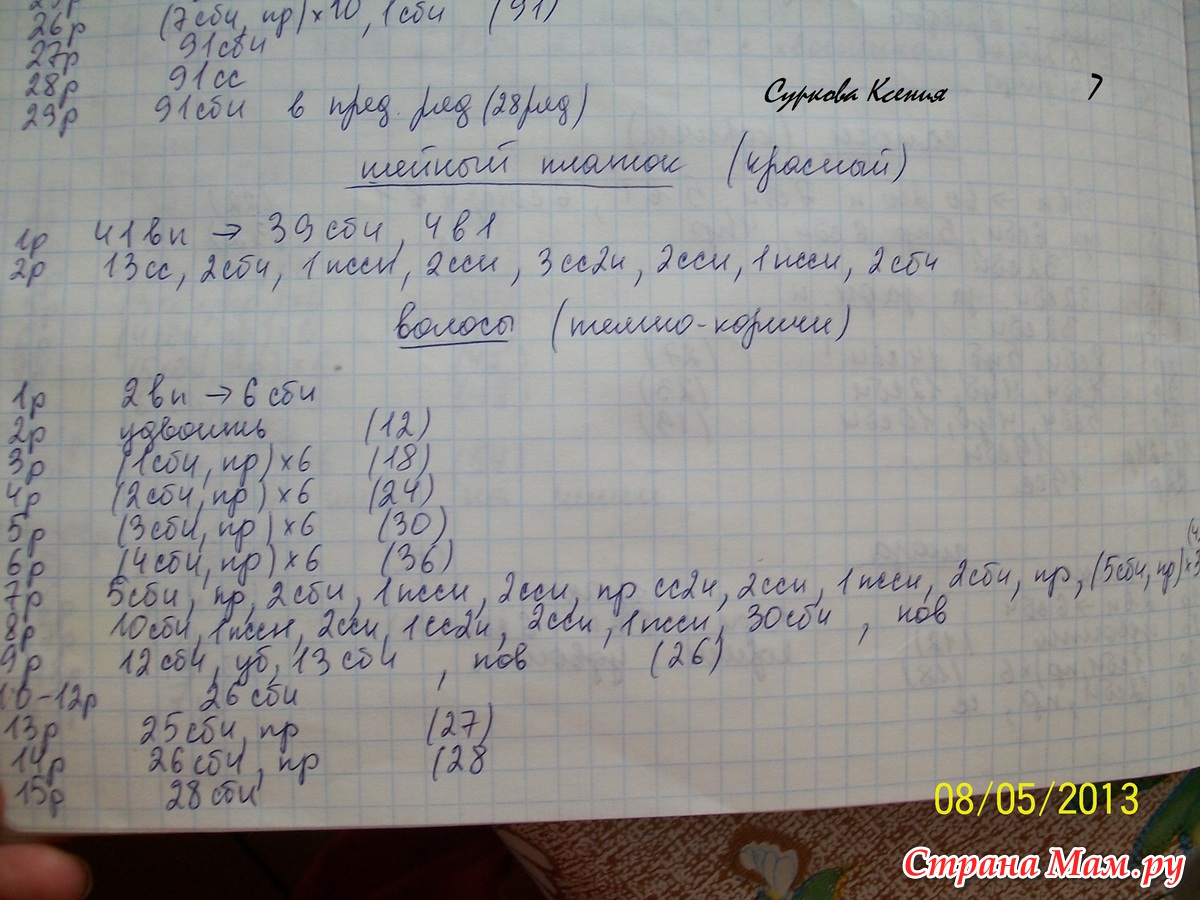 26р (7сбн, пр)×10, 1сбн (91)
27р 91сбн
28р 91сс
29р 91сбн в пред. ряд (28ряд)
Суркова Ксения 7
шейный платок (красный)
1р 41вп → 39сбн, 4в1
2р 13сс, 2сбн, 1пссн, 2ссн, 3сс2н, 2ссн, 1пссн, 2сбн
волосы (темно-коричн)
1р 2вп → 6сбн
2р удвоить (12)
3р (1сбн, пр)×6 (18)
4р (2сбн, пр)×6 (24)
5р (3сбн, пр)×6 (30)
6р (4сбн, пр)×6 (36)
7р 5сбн, пр, 2сбн, 1пссн, 2ссн, пр сс2н, 2ссн, 1пссн, 2сбн, пр, (5сбн, пр)×3
8р 10сбн, 1пссн, 2ссн, 1сс2н, 2ссн, 1пссн, 30сбн, пов
9р 12сбн, уб, 13сбн, пов (26)
10-12р 26сбн
13р 25сбн, пр (27)
14р 26сбн, пр (28
15р 28сбн
08/05/2013
Страна Мам.ру